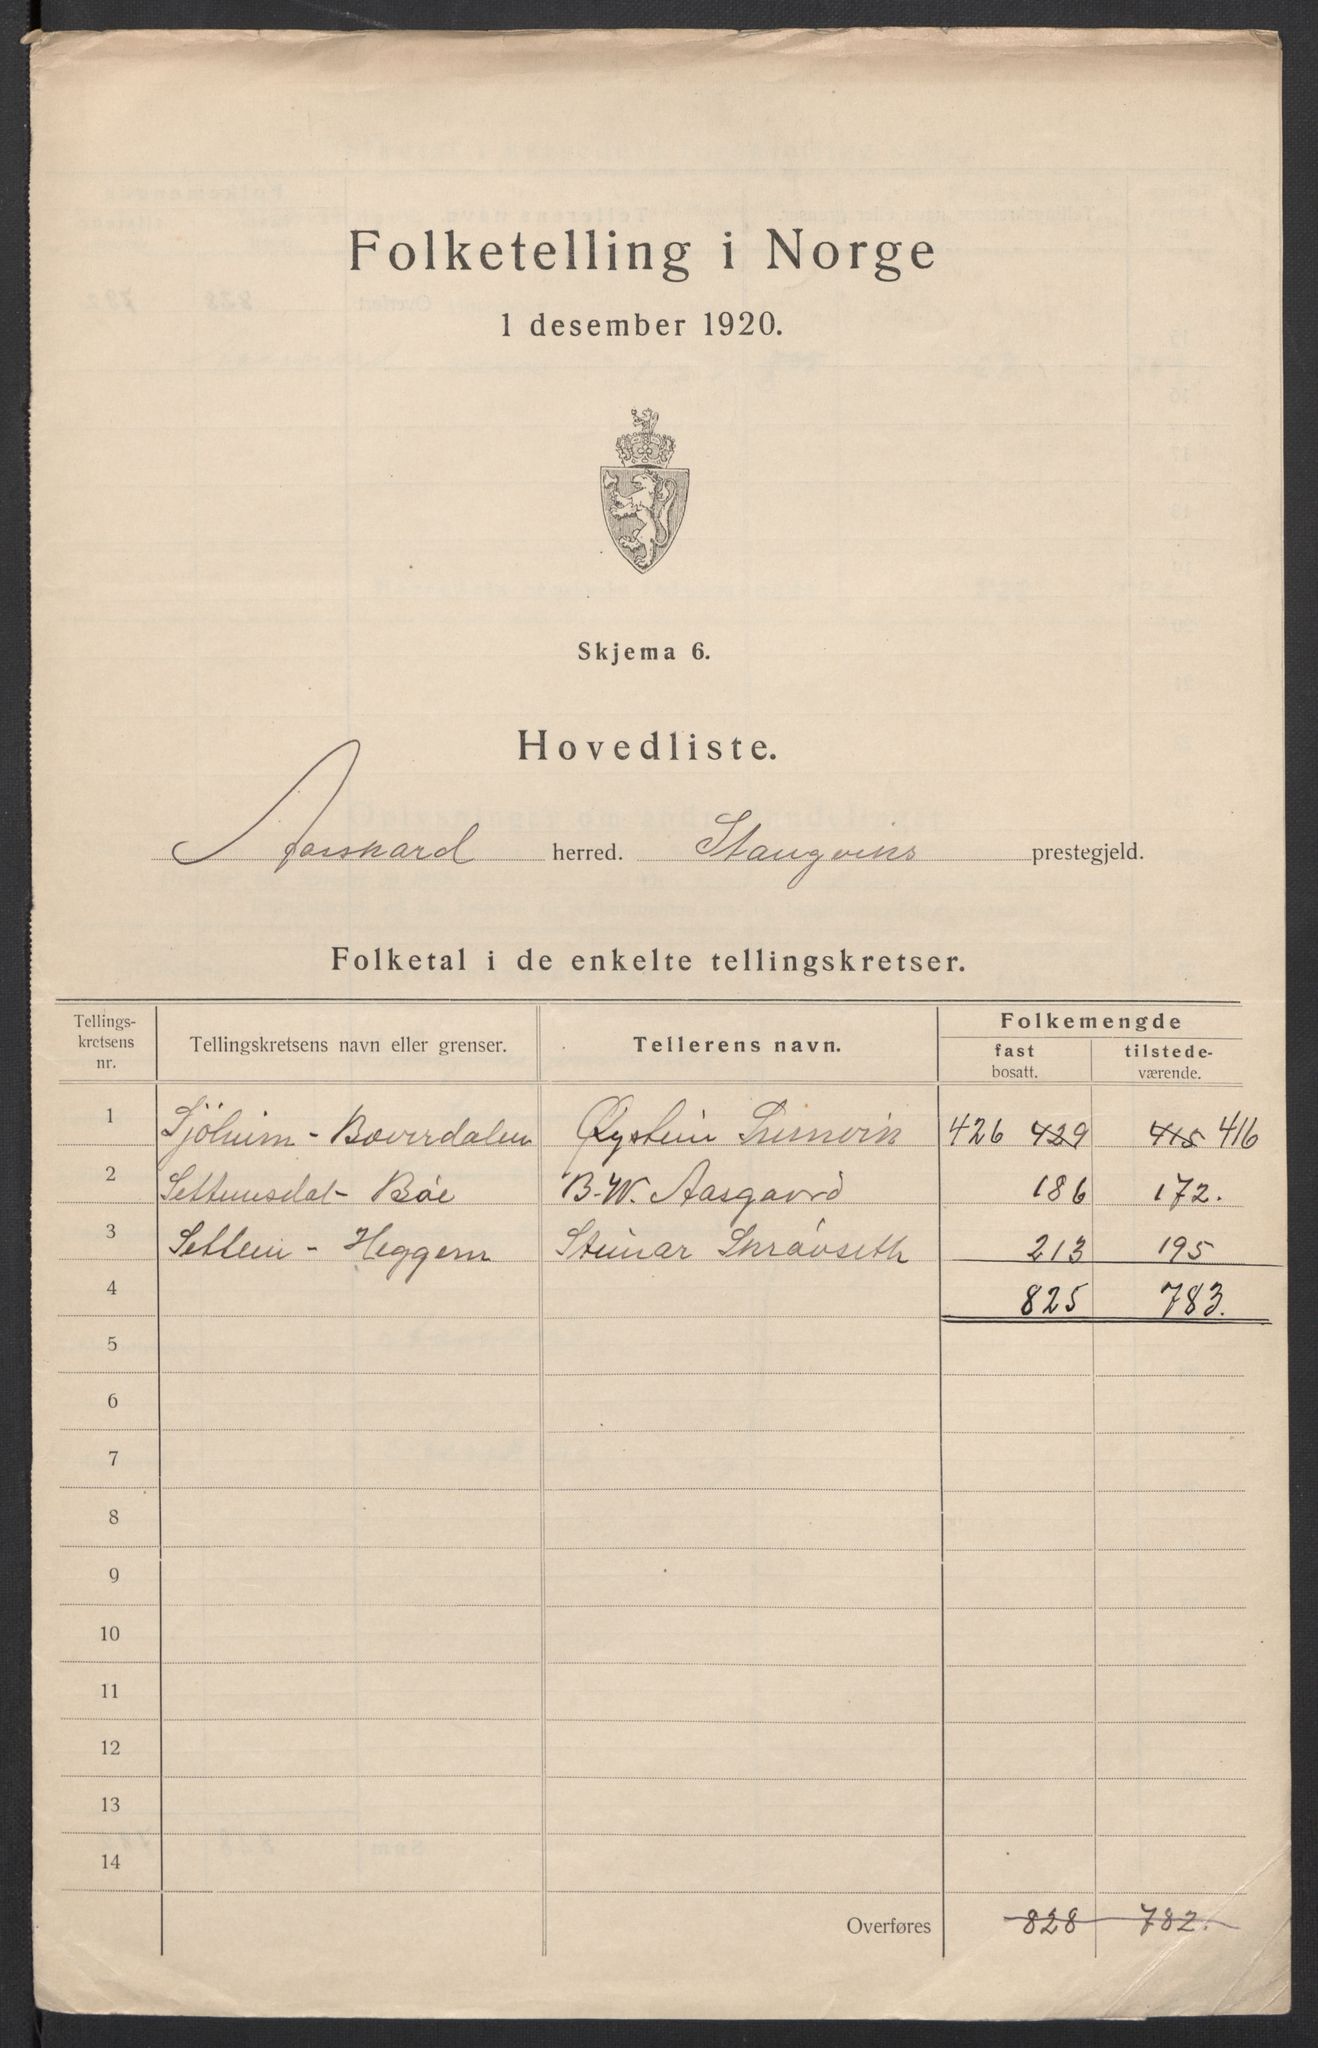 Folketelling i Norge
1 desember 1920.
Skjema 6.
Hovedliste.
Aasskard herred. Stangviks prestegjeld.
Folketal i de enkelte tellingskretser.
Tellings-
kretsens
nr.
Tellingskretsens navn eller grenser.
Tellerens navn.
Folkemengde
fast
bosatt.
tilstede-
værende.
1 Sjöheim - Bøverdalen Øystein 426 429 415 416
2 Settemsdal - Böe B. W. Aasgaard 186 172.
3 Settem - Heggem Steinar Skråvseth 213 195
4 825 783.
5
6
7
8
9
10
11
12
13
14
Overføres 828 782.